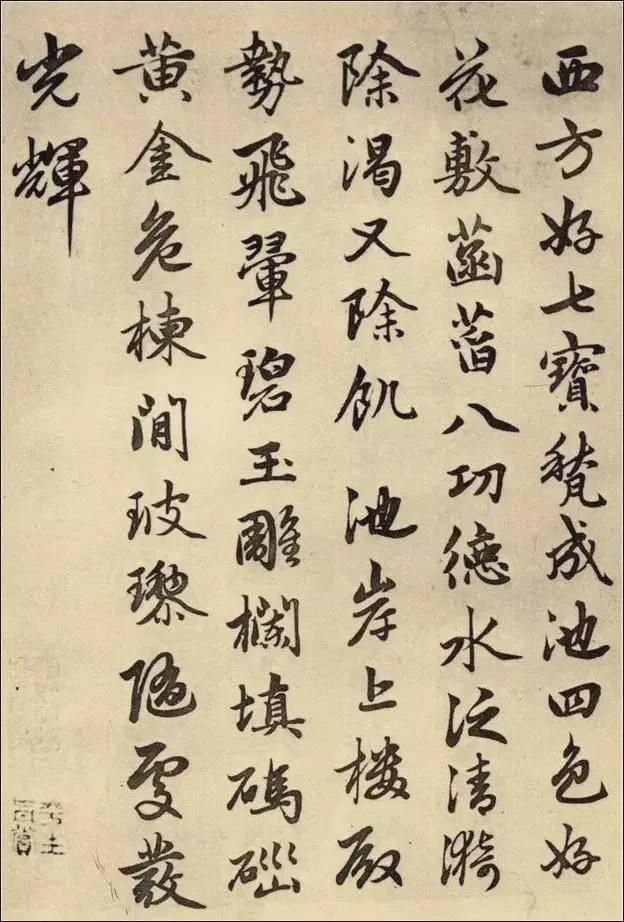 西方好七寶甃成池四色好
花敷菡萏八功德水泛清漪
除渴又除飢池岸上樓殿
勢飛翬碧玉雕欄填碼碯
黃金危棟間玻瓈隨處發
光輝